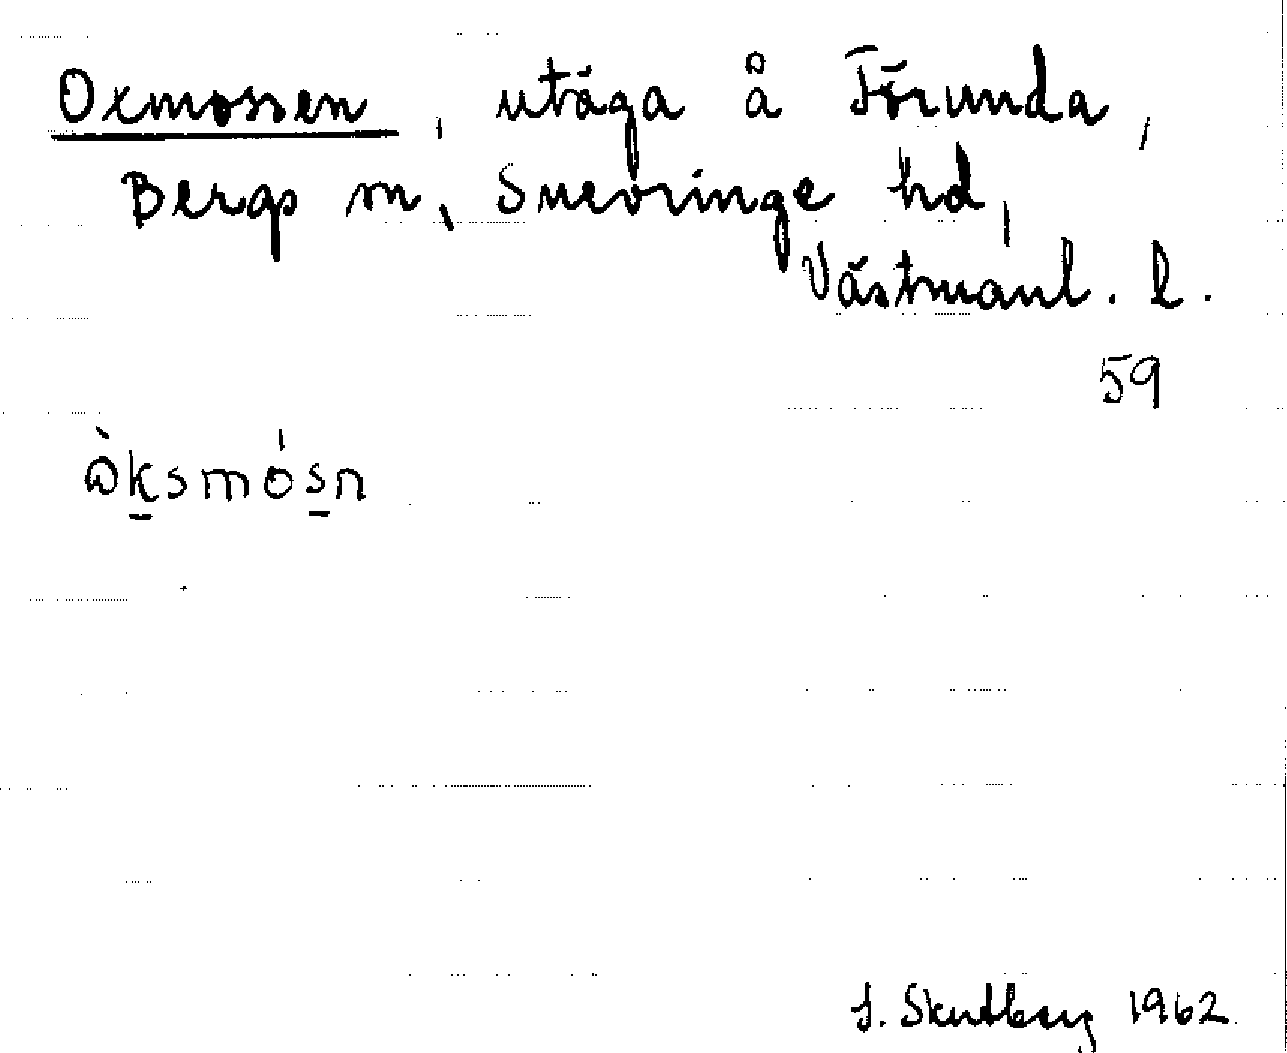 Oxmossen, utäga å Förunda,
Bergs sn, Snevringe hd,
Västmanl. l.
59
ὼksmósn
S. Skutberg 1962